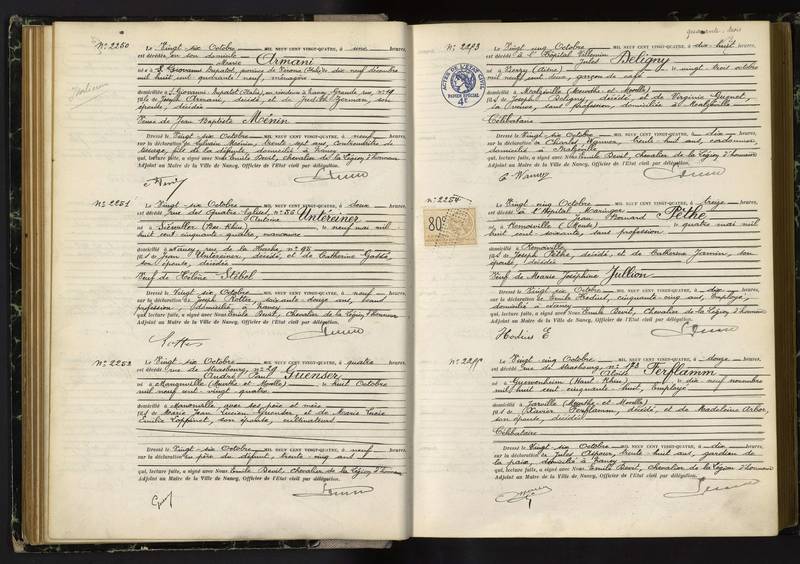 N° 2250
Le Vingt six Octobre MIL NEUF CENT VINGT-QUATRE, à une heures,
est décédée en son domicile
Marie Armani
née à S. Giovanni Lupatot, province de Verona (Italie) le dix neuf décembre
mil huit cent quarante neuf, ménagère
domiciliée à S. Giovanni Lupatot (Italie), en résidence à Nancy, Grande rue, n° 19
fille de Joseph Armani, décédé, et de Judith German, son
épouse, décédée
Veuve de Jean BaptisteMénin
Dressé le Vingt six Octobre MIL NEUF CENT VINGT-QUATRE, à neuf heures,
sur la déclaration de Sylvain Menin, trente sept ans, contremaître de
tissage, fils de la défunte, domicilié à Nancy
qui, lecture faite, a signé avec Nous Emile Devit, Chevalier de la Légion d'honneur
Adjoint au Maire de la Ville de Nancy, Officier de l'Etat civil par délégation.
N° 2251
Le Vingt six Octobre MIL NEUF CENT VINGT-QUATRE, à deux heures,
est décédé rue des Quatre Eglises, n° 55
Antoine Untéreiner
né à Siewiller (Bas Rhin) le neuf mai mil
huit cent cinquante quatre, manœuvre
domicilié à Nancy, rue de la Hache, n° 95
fils de Jean Untereiner, décédé, et de Catherine
son épouse, décédée
Veuf de Hélène Stébel
Dressé le Vingt six Octobre MIL NEUF CENT VINGT-QUATRE, à neuf heures,
sur la déclaration de Joseph Rotter, soixante douze ans, sans
profession, domicilié à Nancy
qui, lecture faite, a signé avec Nous Emile Devit, Chevalier de la Légion d'honneur
Adjoint au Maire de la Ville de Nancy, Officier de l'Etat civil par délégation.
N° 2252
Le Vingt six Octobre MIL NEUF CENT VINGT-QUATRE, à quatre heures,
est décédé rue de Strasbourg, n° 29
André Paul Guenser
né à Mangonville (Meurthe et Moselle) le huit Octobre
mil neuf cent vingt quatre
domicilié à Manonville, avec ses père et mère
fils de Marie Jean Lucien Guenser, et de Marie Lucie
Emilie Loppinet, son épouse, cultivateurs
Dressé le Vingt six Octobre MIL NEUF CENT VINGT-QUATRE, à neuf heures,
sur la déclaration du père du défunt, trente cinq ans
qui, lecture faite, a signé avec Nous Emile Devit, Chevalier de la Légion d'honneur
Adjoint au Maire de la Ville de Nancy, Officier de l'Etat civil par délégation.
quarante trois
N° 2253
Le Vingt cinq Octobre MIL NEUF CENT VINGT-QUATRE, à dix huit heures,
est décédé à l'Hôpital Villemin
Jules Béligny
né à Berry (Aisne) le vingt trois octobre
mil neuf cent deux, garçon de café
domicilié à Malzéville (Meurthe et Moselle)
fils de Joseph Béligny, décédé, et de Virginie Guenet,
sa veuve, sans profession, domiciliée à Malzéville
Célibataire
ACTES DE L'ÉTAT CIVIL
PAPIER SPÉCIAL
4F
Dressé le Vingt six Octobre MIL NEUF CENT VINGT-QUATRE, à dix heures,
sur la déclaration de Charles Warner, trente huit ans, cordonnier
domicilié à Malzéville
qui, lecture faite, a signé avec Nous Emile Devit, Chevalier de la Légion d'honneur
Adjoint au Maire de la Ville de Nancy, Officier de l'Etat civil par délégation.
N° 2254
80c
Le Vingt cinq Octobre MIL NEUF CENT VINGT-QUATRE, à treize heures,
est décédé à l'Hôpital Maringer
Jean Bernard Péthe
né à Remoiville (Meuse) le quatre mai mil
huit cent soixante, sans profession
domicilié à Remoiville
fils de Joseph Péthe, décédé, et de Catherine Jamin, son
épouse, décédée
Veuf de Marie Joséphine Jullion
Dressé le Vingt six Octobre MIL NEUF CENT VINGT-QUATRE, à dix heures,
sur la déclaration de Emile Hodius, cinquante cinq ans, Employé,
domicilié à Nancy
qui, lecture faite, a signé avec Nous Emile Devit, Chevalier de la Légion d'honneur
Adjoint au Maire de la Ville de Nancy, Officier de l'Etat civil par délégation.
Hodius E
N° 2255
Le Vingt cinq Octobre MIL NEUF CENT VINGT-QUATRE, à douze heures,
est décédé rue de Strasbourg n° 173
Aloïs Ferflamm
né à Guewenheim (Haut Rhin) le dix neuf novembre
mil huit cent cinquante huit, Employé
domicilié à Jarville (Meurthe et Moselle)
fils de Xavier Ferflamm, décédé, et de Madeleine Arbor,
son épouse, décédée
Célibataire
Dressé le Vingt six Octobre MIL NEUF CENT VINGT-QUATRE, à dix heures,
sur la déclaration de Jules Aspour, trente huit ans, gardien de
la paix, domicilié à Nancy
qui, lecture faite, a signé avec Nous Emile Devit, Chevalier de la Légion d'honneur
Adjoint au Maire de la Ville de Nancy, Officier de l'Etat civil par délégation.